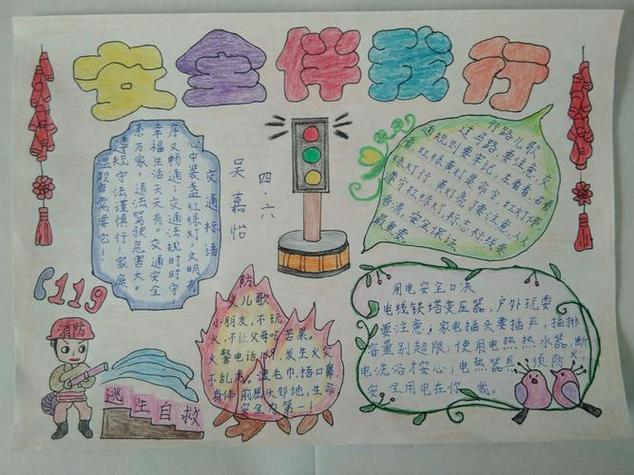 安全伴我行
交通标语
心中装盏红绿灯，文明有
序又畅通；交通法规时时守
幸福生活天天有。交通安全
系万家，违法驾驶危害大。
遵规守法谨慎行，家庭
温馨需要它！
四.六
吴嘉怡
行路儿歌
过马路，要注意，交
通规则要牢记，左看看右看
看红绿黄灯是命令，红灯停
绿灯行，黄灯亮了要注意，人人
遵守红绿灯，标志标线要
看清，安全保证
最重要
119
消防
逃生自救
防火儿歌
小朋友，不玩
火，不让父母吃苦果。
火警电话119，发生火灾
不乱来。湿毛巾，捂口鼻
身体前屈头邻地，生命
安全为第一！
用电安全口决
电线铁塔变压器，户外玩耍
要注意；家电插头要插严，插排
容量别超限；使用电热热水器，断
电洗浴才安心；电热器具须防火，
安全用电在你我。